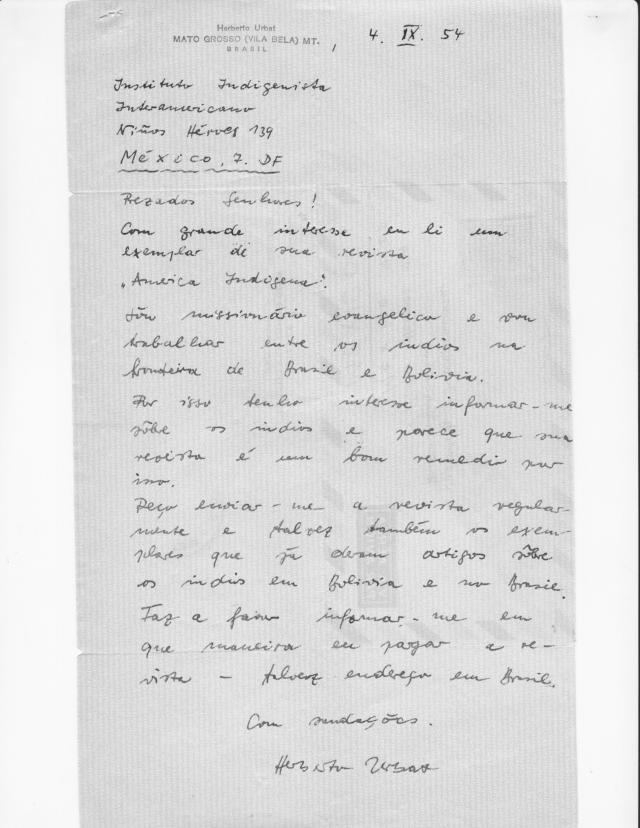 Herberto Urbat
MATO GROSSO (VILA BELA) MT.
BRASIL
4. IX. 54
Instituto Indigenista
Interamericano
Niños Héroes 139
México, 7. DF
Prezados Senhores!
Com grande interesse eu li um
exemplar de sua revista
„America Indigena".
Sou missionário evangelico e vou
trabalhar entre os indios na
fronteira de Brasil e Bolivia.
Por isso tenho interesse informar-me
sôbe os indios e parece que sua
revista é um bom remedio por
isso.
Peço enviar-me a revista regular-
mente e talvez também os exem-
plares que já deram artigos sôbre
os indios em Bolivia e no Brasil.
Faz a favor informar-me em
que maneira eu pagar a re-
vista – talvez endereço em Brasil.
Com saudações.
Herberto Urbat